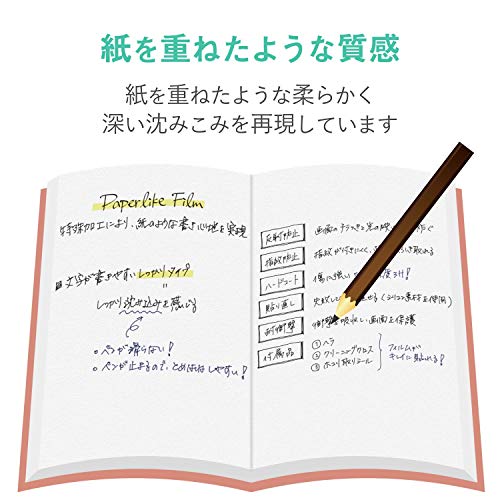 紙を重ねたような質感
紙を重ねたような柔らかく
深い沈みこみを再現しています
Paperlike Film
特殊加工により、紙のような書き心地を実現
■文字が書きやすいしっかりタイプ
しっかり沈み込みを感じる
・ペンが滑らない!
・ペンが止まるので、とめはねしやすい!
反射防止 画面のチラつきを光の映 防ぐ
指紋防止 指紋が付きにくく、 き取れる
ハードコート 傷に強い 度3H!
貼り直し 失敗し せる(シリコン素材を使用)
耐衝撃 衝撃吸収し、画面を保護
付属品 ①ヘラ
②クリーニングクロス
③ホコリ取りシール
フィルムが
キレイに貼れる!